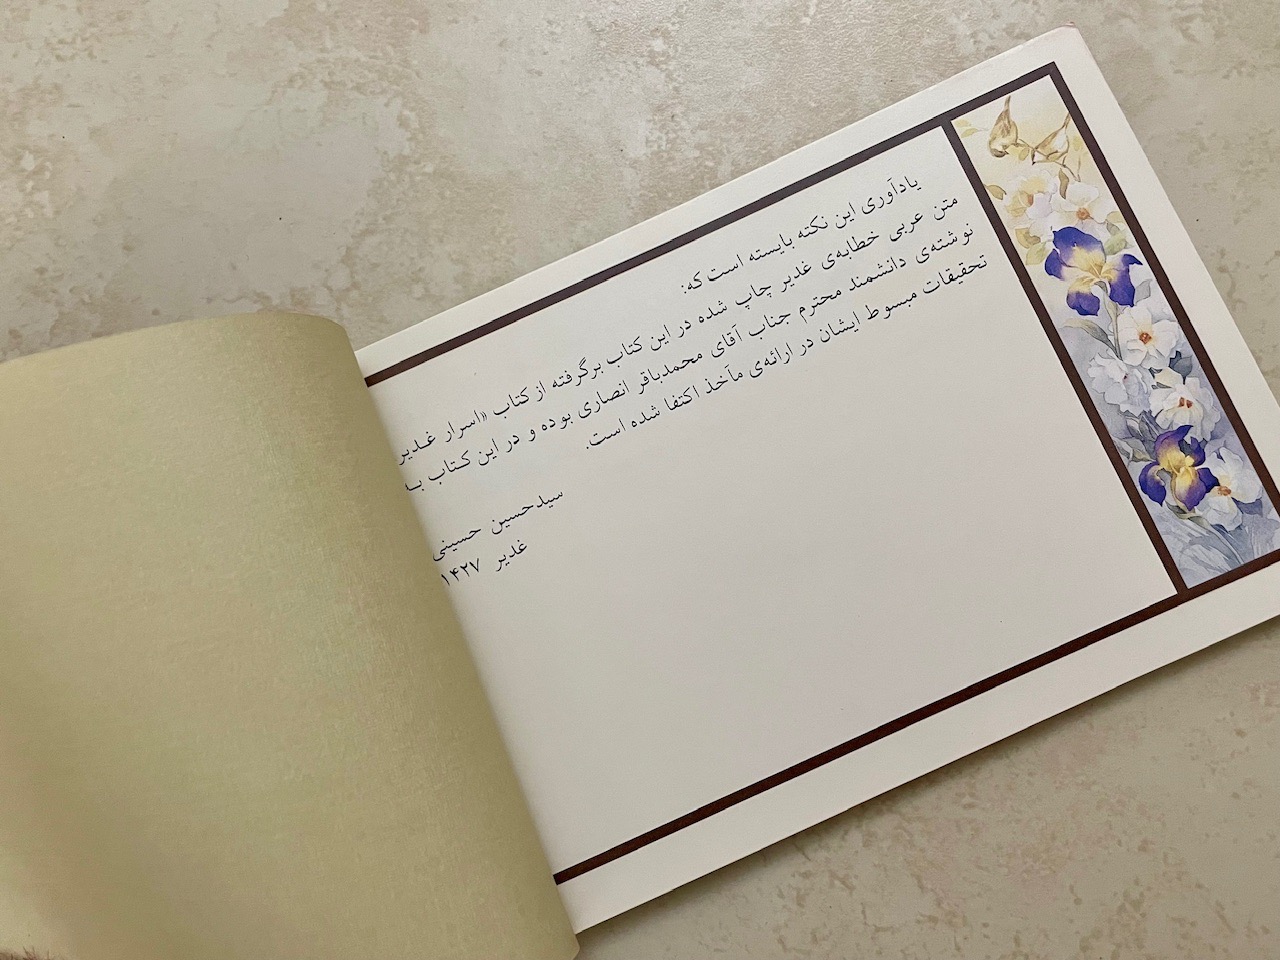 یادآوری این نکته بایسته است که:
متن عربی خطابه‌ی غدیر چاپ شده در این کتاب برگرفته از کتاب «اسرار غدیر
نوشته‌ی دانشمند محترم جناب آقای محمدباقر انصاری بوده و در این کتاب به
تحقیقات مبسوط ایشان در ارائه‌ی مآخذ اکتفا شده است.
سیدحسین حسینی
غدیر ۱۴۲۷